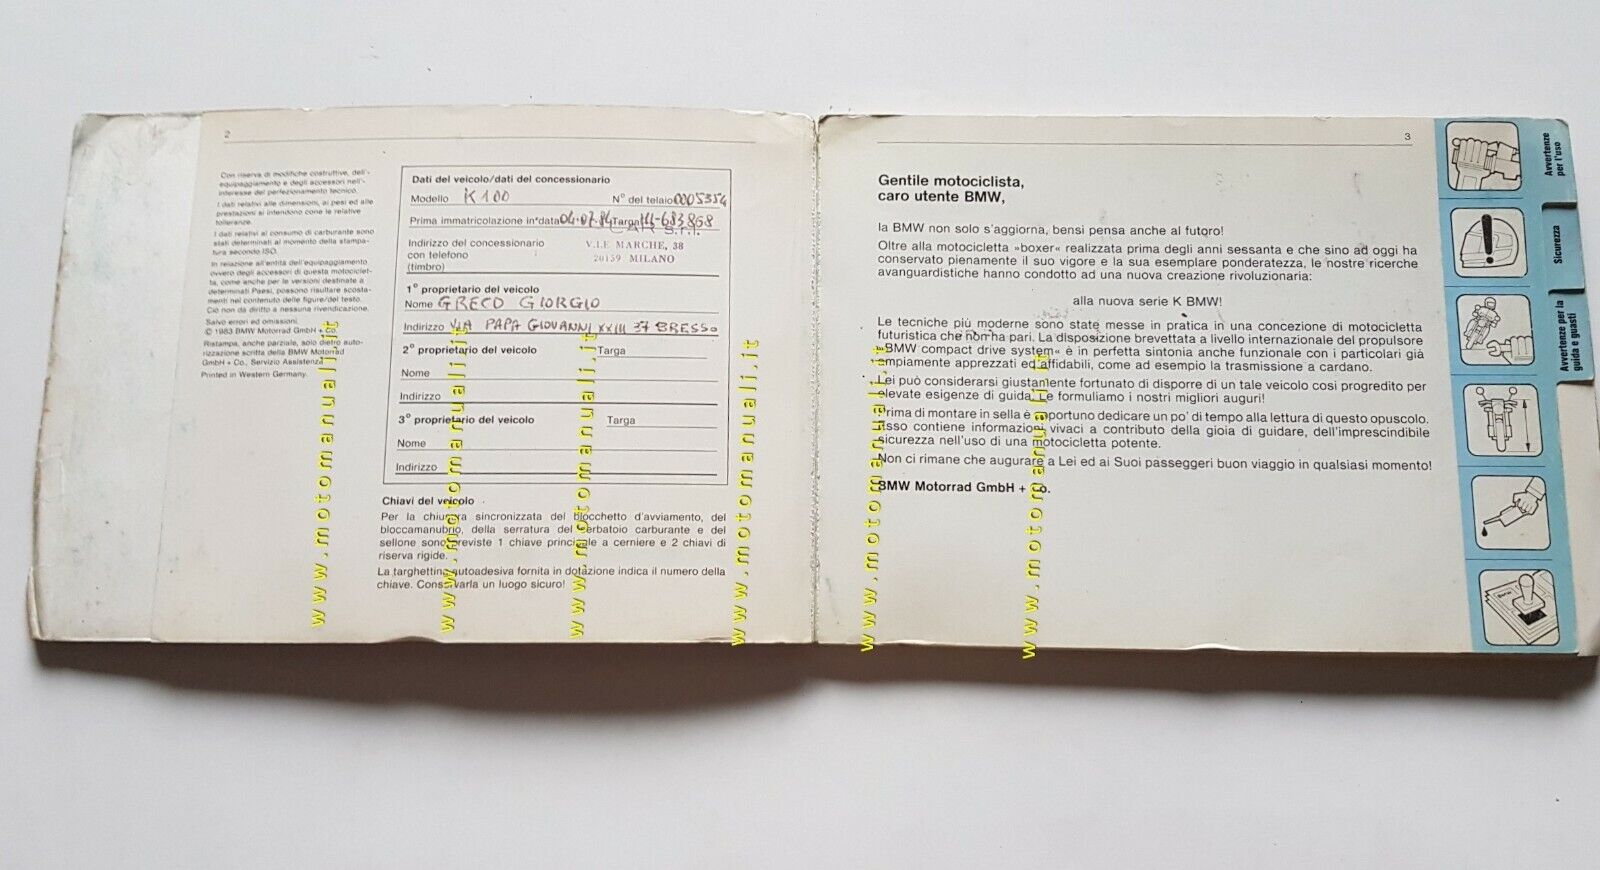 2
Con riserva di modifiche costruttive, dell'-
equipaggiamento e degli accessori nell'-
interesse del perfezionamento tecnico.
I dati relativi alle dimensioni, ai pesi ed alle
prestazioni si intendono cone le relative
tolleranze.
I dati relativi al consumo di carburante sono
stati determinati al momento della stampa-
tura secondo ISO.
In relazione all'entità dell'equipaggiamento
ovvero degli accessori di questa motociclet-
ta, come anche per le versioni destinate a
determinati Paesi, possono risultare scosta-
menti nel contenuto delle figure/del testo.
Ciò non da diritto a nessuna rivendicazione.
Salvo errori ed omissioni.
© 1983 BMW Motorrad GmbH + Co.
Ristampa, anche parziale, solo dietro auto-
rizzazione scritta della BMW Motorrad
GmbH + Co., Servizio Assistenza
Printed in Western Germany.
Dati del veicolo/dati del concessionario
Modello K 100 N° del telaio 0005354
Prima immatricolazione in data 04.07.84 Targa MI-683868
S.r.l.
Indirizzo del concessionario V.LE MARCHE, 38
con telefono 20159 MILANO
(timbro)
1° proprietario del veicolo
Nome GRECO GIORGIO
Indirizzo VIA PAPA GIOVANNI XXIII 37 BRESSO
2° proprietario del veicolo Targa
Nome
Indirizzo
3° proprietario del veicolo Targa
Nome
Indirizzo
Chiavi del veicolo
Per la chiusura sincronizzata del blocchetto d'avviamento, del
bloccamanubrio, della serratura del serbatoio carburante e del
sellone sono previste 1 chiave principale a cerniere e 2 chiavi di
riserva rigide.
La targhettina autoadesiva fornita in dotazione indica il numero della
chiave. Conservarla un luogo sicuro!
www.motomanuali.it
www.motomanuali.it
www.motomanuali.it
www.motomanuali.it
3
Gentile motociclista,
caro utente BMW,
la BMW non solo s'aggiorna, bensi pensa anche al futuro!
Oltre alla motocicletta »boxer« realizzata prima degli anni sessanta e che sino ad oggi ha
conservato pienamente il suo vigore e la sua esemplare ponderatezza, le nostre ricerche
avanguardistiche hanno condotto ad una nuova creazione rivoluzionaria:
alla nuova serie K BMW!
Le tecniche più moderne sono state messe in pratica in una concezione di motocicletta
futuristica che non ha pari. La disposizione brevettata a livello internazionale del propulsore
»BMW compact drive system« è in perfetta sintonia anche funzionale con i particolari già
ampiamente apprezzati ed affidabili, come ad esempio la trasmissione a cardano.
Lei può considerarsi giustamente fortunato di disporre di un tale veicolo cosi progredito per
elevate esigenze di guida. Le formuliamo i nostri migliori auguri!
Prima di montare in sella è opportuno dedicare un po' di tempo alla lettura di questo opuscolo.
Esso contiene informazioni vivaci a contributo della gioia di guidare, dell'imprescindibile
sicurezza nell'uso di una motocicletta potente.
Non ci rimane che augurare a Lei ed ai Suoi passeggeri buon viaggio in qualsiasi momento!
BMW Motorrad GmbH + Co.
www.motomanuali.it
www.motomanuali.it
Avvertenze
per l'uso
Sicurezza
Avvertenze per la
guida e guasti